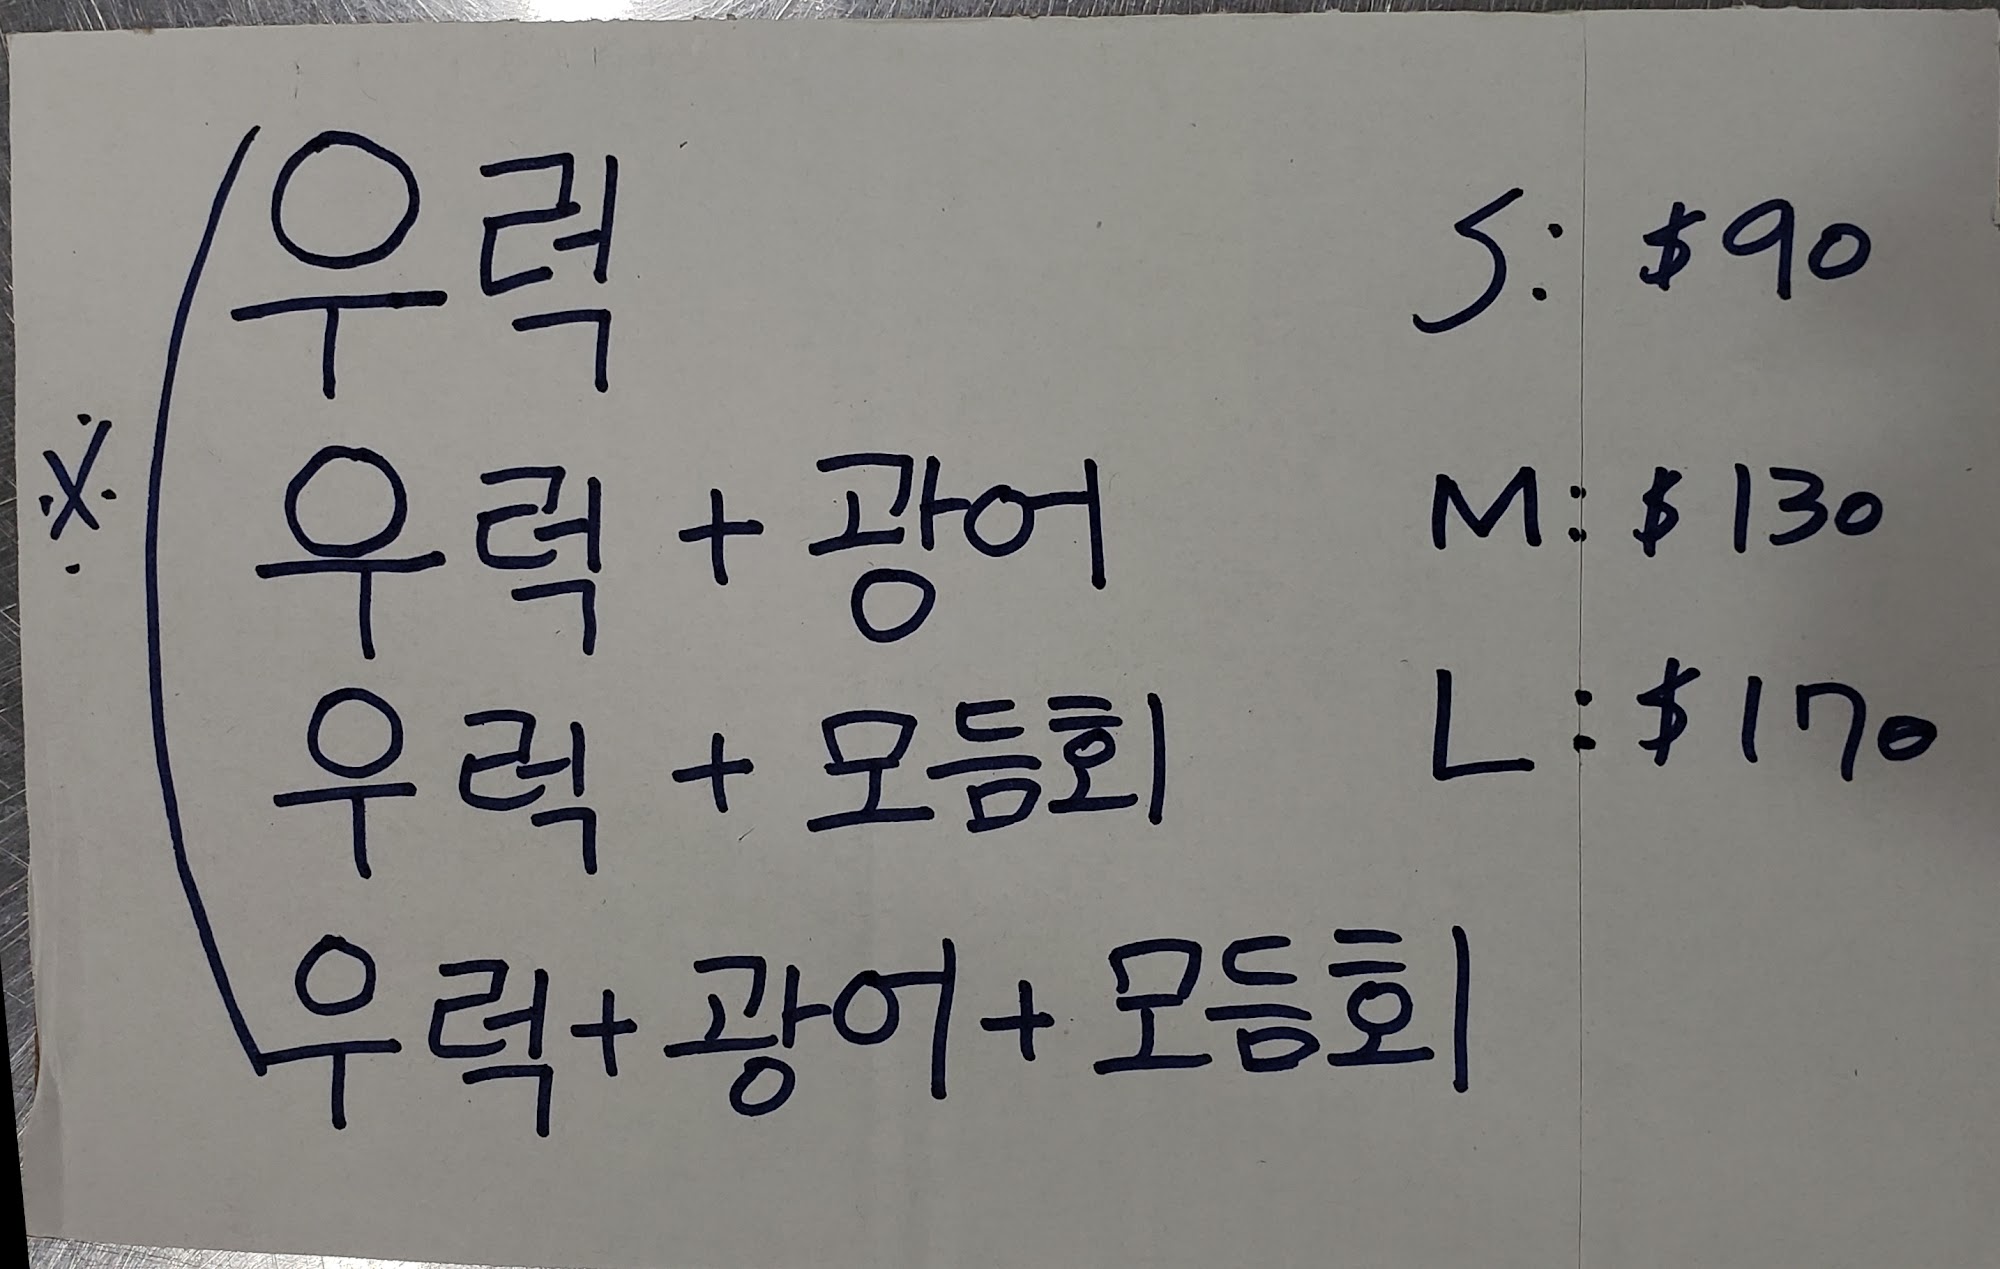 ※ 우럭 S: $90
우럭 + 광어 M: $130
우럭 + 모듬회 L: $170
우럭 + 광어 + 모듬회